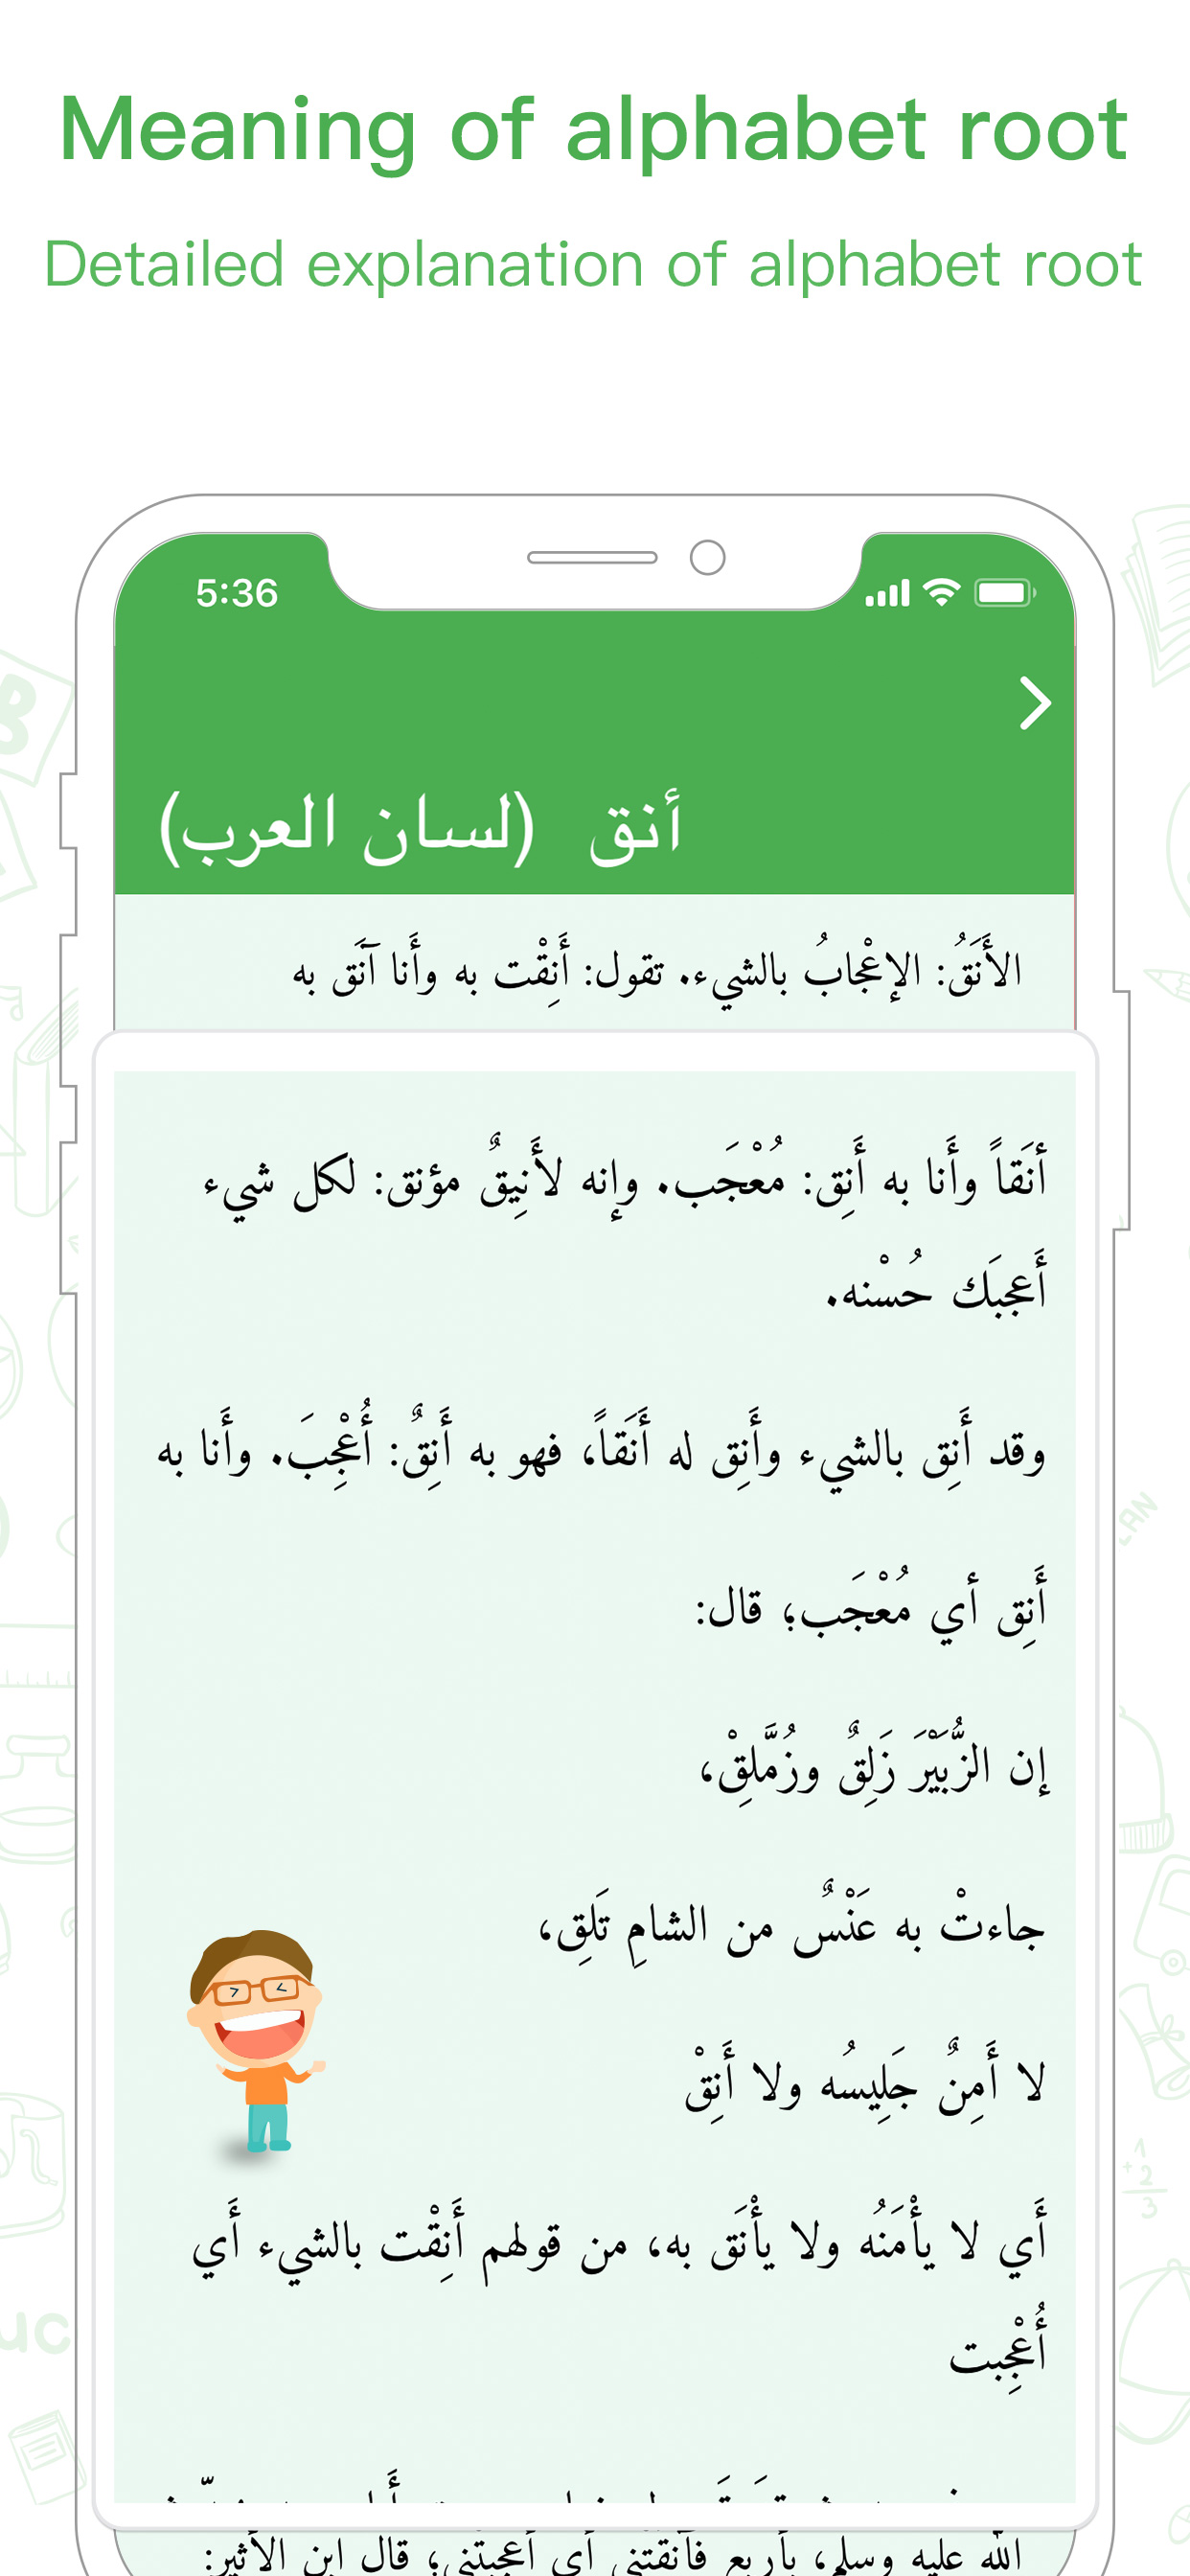 Meaning of alphabet root
Detailed explanation of alphabet root
5:36
أنق (لسان العرب)
الأَنَقُ: الإعْجابُ بالشيء. تقول: أَنِقْت به وأَنا آنَق به
أنَقاً وأَنا به أَنِق: مُعْجَب. وإنه لأَنِيقٌ مؤنق: لكل شيء
أَعجبَك حُسْنه.
وقد أَنِق بالشيء وأَنِق له أَنَقاً، فهو به أَنِقٌ: أُعْجِبَ. وأَنا به
أَنِق أي مُعْجَب؛ قال:
إن الزُّبَيْرَ زَلِقٌ وزُمَّلِقْ،
جاءتْ به عَنْسٌ من الشامِ تَلِق،
لا أَمِنٌ جَلِيسُه ولا أَنِقْ
أَي لا يأْمَنُه ولا يأْنَق به، من قولهم أَنِقْت بالشيء أَي
أُعْجِبت
الله عليه وسلم، بأَربع فآنَقَتْني أَي أَعجبتْني؛ قال ابن الأَثير:
B
LAN
uc
1
+2
3